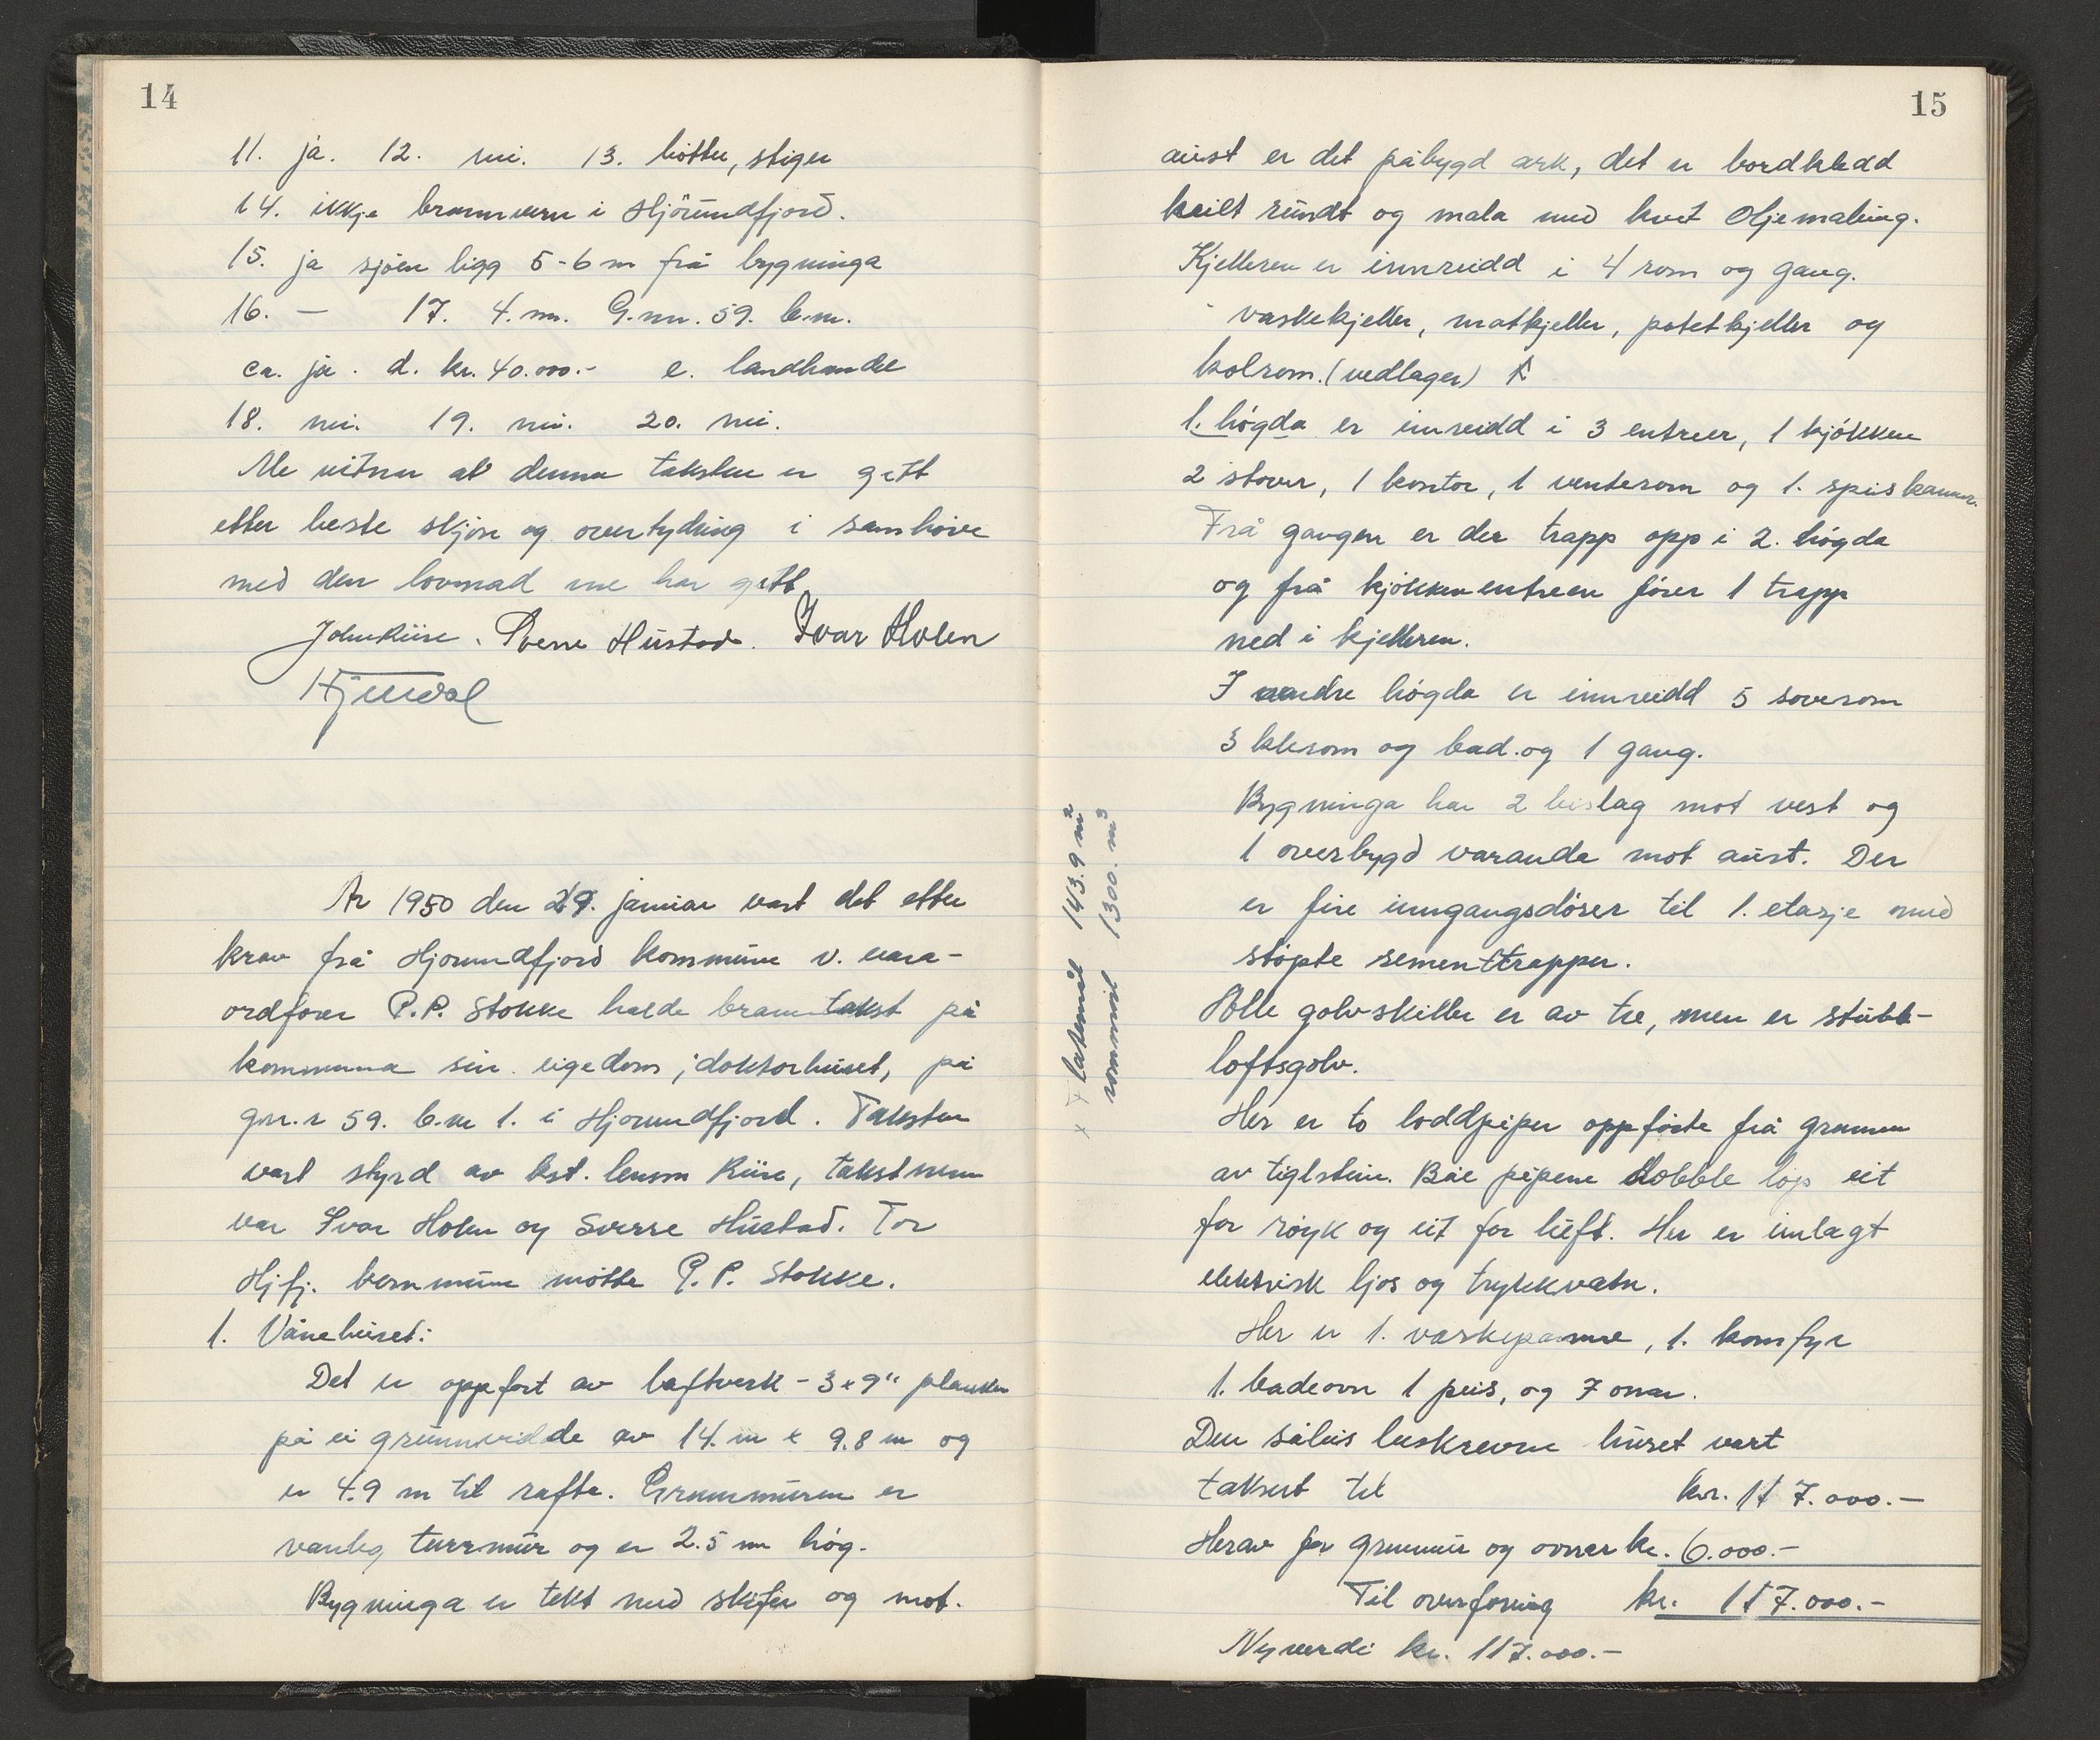 14
11. ja. 12. nei. 13. bötter, stiger
14. ikkje brannvern i Hjörundfjord.
15. ja sjöen ligg 5-6 m frå bygninga
16. — 17. 4. m. G.nr. 59. b.nr.
ca. ja. d. kr. 40.000.- e. landhandel
18. nei. 19. nei. 20. nei.
Me vitnar at denne taksten er gitt
etter beste skjön og overtydning i samhöve
med den lovnad me har gitt
John Riise. Sverre Hustad. Ivar Holen
År 1950 den 29. januar vart det etter
krav frå Hjorundfjord kommune v. vara-
ordförer P.P. Stokke halde branntakst på
kommuna sin eigedom, doktorhuset, på
gnr. 59. b.nr 1. i Hjorundfjord. Taksten
vart styrd av kst. lensm Riise, takstmenn
var Ivar Holen og Sverre Hustad. For
Hjfj. kommune møtte P. P. Stokke.
1. Vånehuset:
Det er oppfört av laftverk - 3 x 9" planker
på ei grunnvidde av 14. m x 9.8 m og
er 4.9 m til rafte. Grunnmuren er
vanleg turrmur og er 2.5 m hög.
Bygninga er tekt med skifer og mot.
15
aust er det påbygd ark, det er bordkledd
heilt rundt og mala med kvit Oljemaling.
Kjelleren er innreidd i 4 rom og gang.
vaskekjeller, matkjeller, potetkjeller og
kolrom. (vedlager)
1. högda er innreidd i 3 entreer, 1 kjökken
2 stover, 1 kontor, 1 venterom og 1. spiskammer.
Frå gangen er der trapp opp i 2. högda
og frå kjökkenentreen förer 1 trapp
ned i kjelleren.
I andre högda er innreidd 5 soverom
3 klerom og bad. og 1 gang.
Bygninga har 2 bislag mot vest og
1 overbygd varanda mot aust. Der
er fire inngangsdörer til 1. etasje med
stöpte sementtrapper.
Alle golvskiller er av tre, men er stubb-
loftsgolv.
Her er to loddpiper oppförte frå grunnen
av tiglstein. Båe pipene dobble löp eit
for röyk og eit for luft. Her er innlagt
elektrisk ljos og trykkvatn.
Her er 1. vaskepanne, 1. komfyr
1. badeovn 1 peis, og 7 omnar.
Den såleis beskrevne huset vart
taksert til kr. 117.000.-
Herav for grunnmur og ovner kr. 6.000.-
Til overföring kr. 117.000.-
Nyverdi kr. 117.000.-
x Flatemål 143.9 m²
rommål 1300. m³